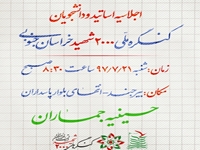 اجلاسیه اساتید و دانشجویان
کنگره ملی ۲۰۰۰ شهید خراسان جنوبی
زمان: شنبه ۹۷/۷/۲۱ ساعت ۸:۳۰ صبح
مکان: بیرجند - انتهای بلوار پاسداران
حسینیه جماران